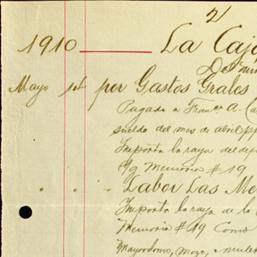 21
1910 La Caja
De
Mayo 1st por Gastos Grales
Pagado a Franco A. Ca
sueldo del mes de abril ppd
Importa la raya del dep
Memoria # 19
" " " Labor Las Me
Importa la raya de la
Memoria # 19 Como
Mayordomo, Mozo,